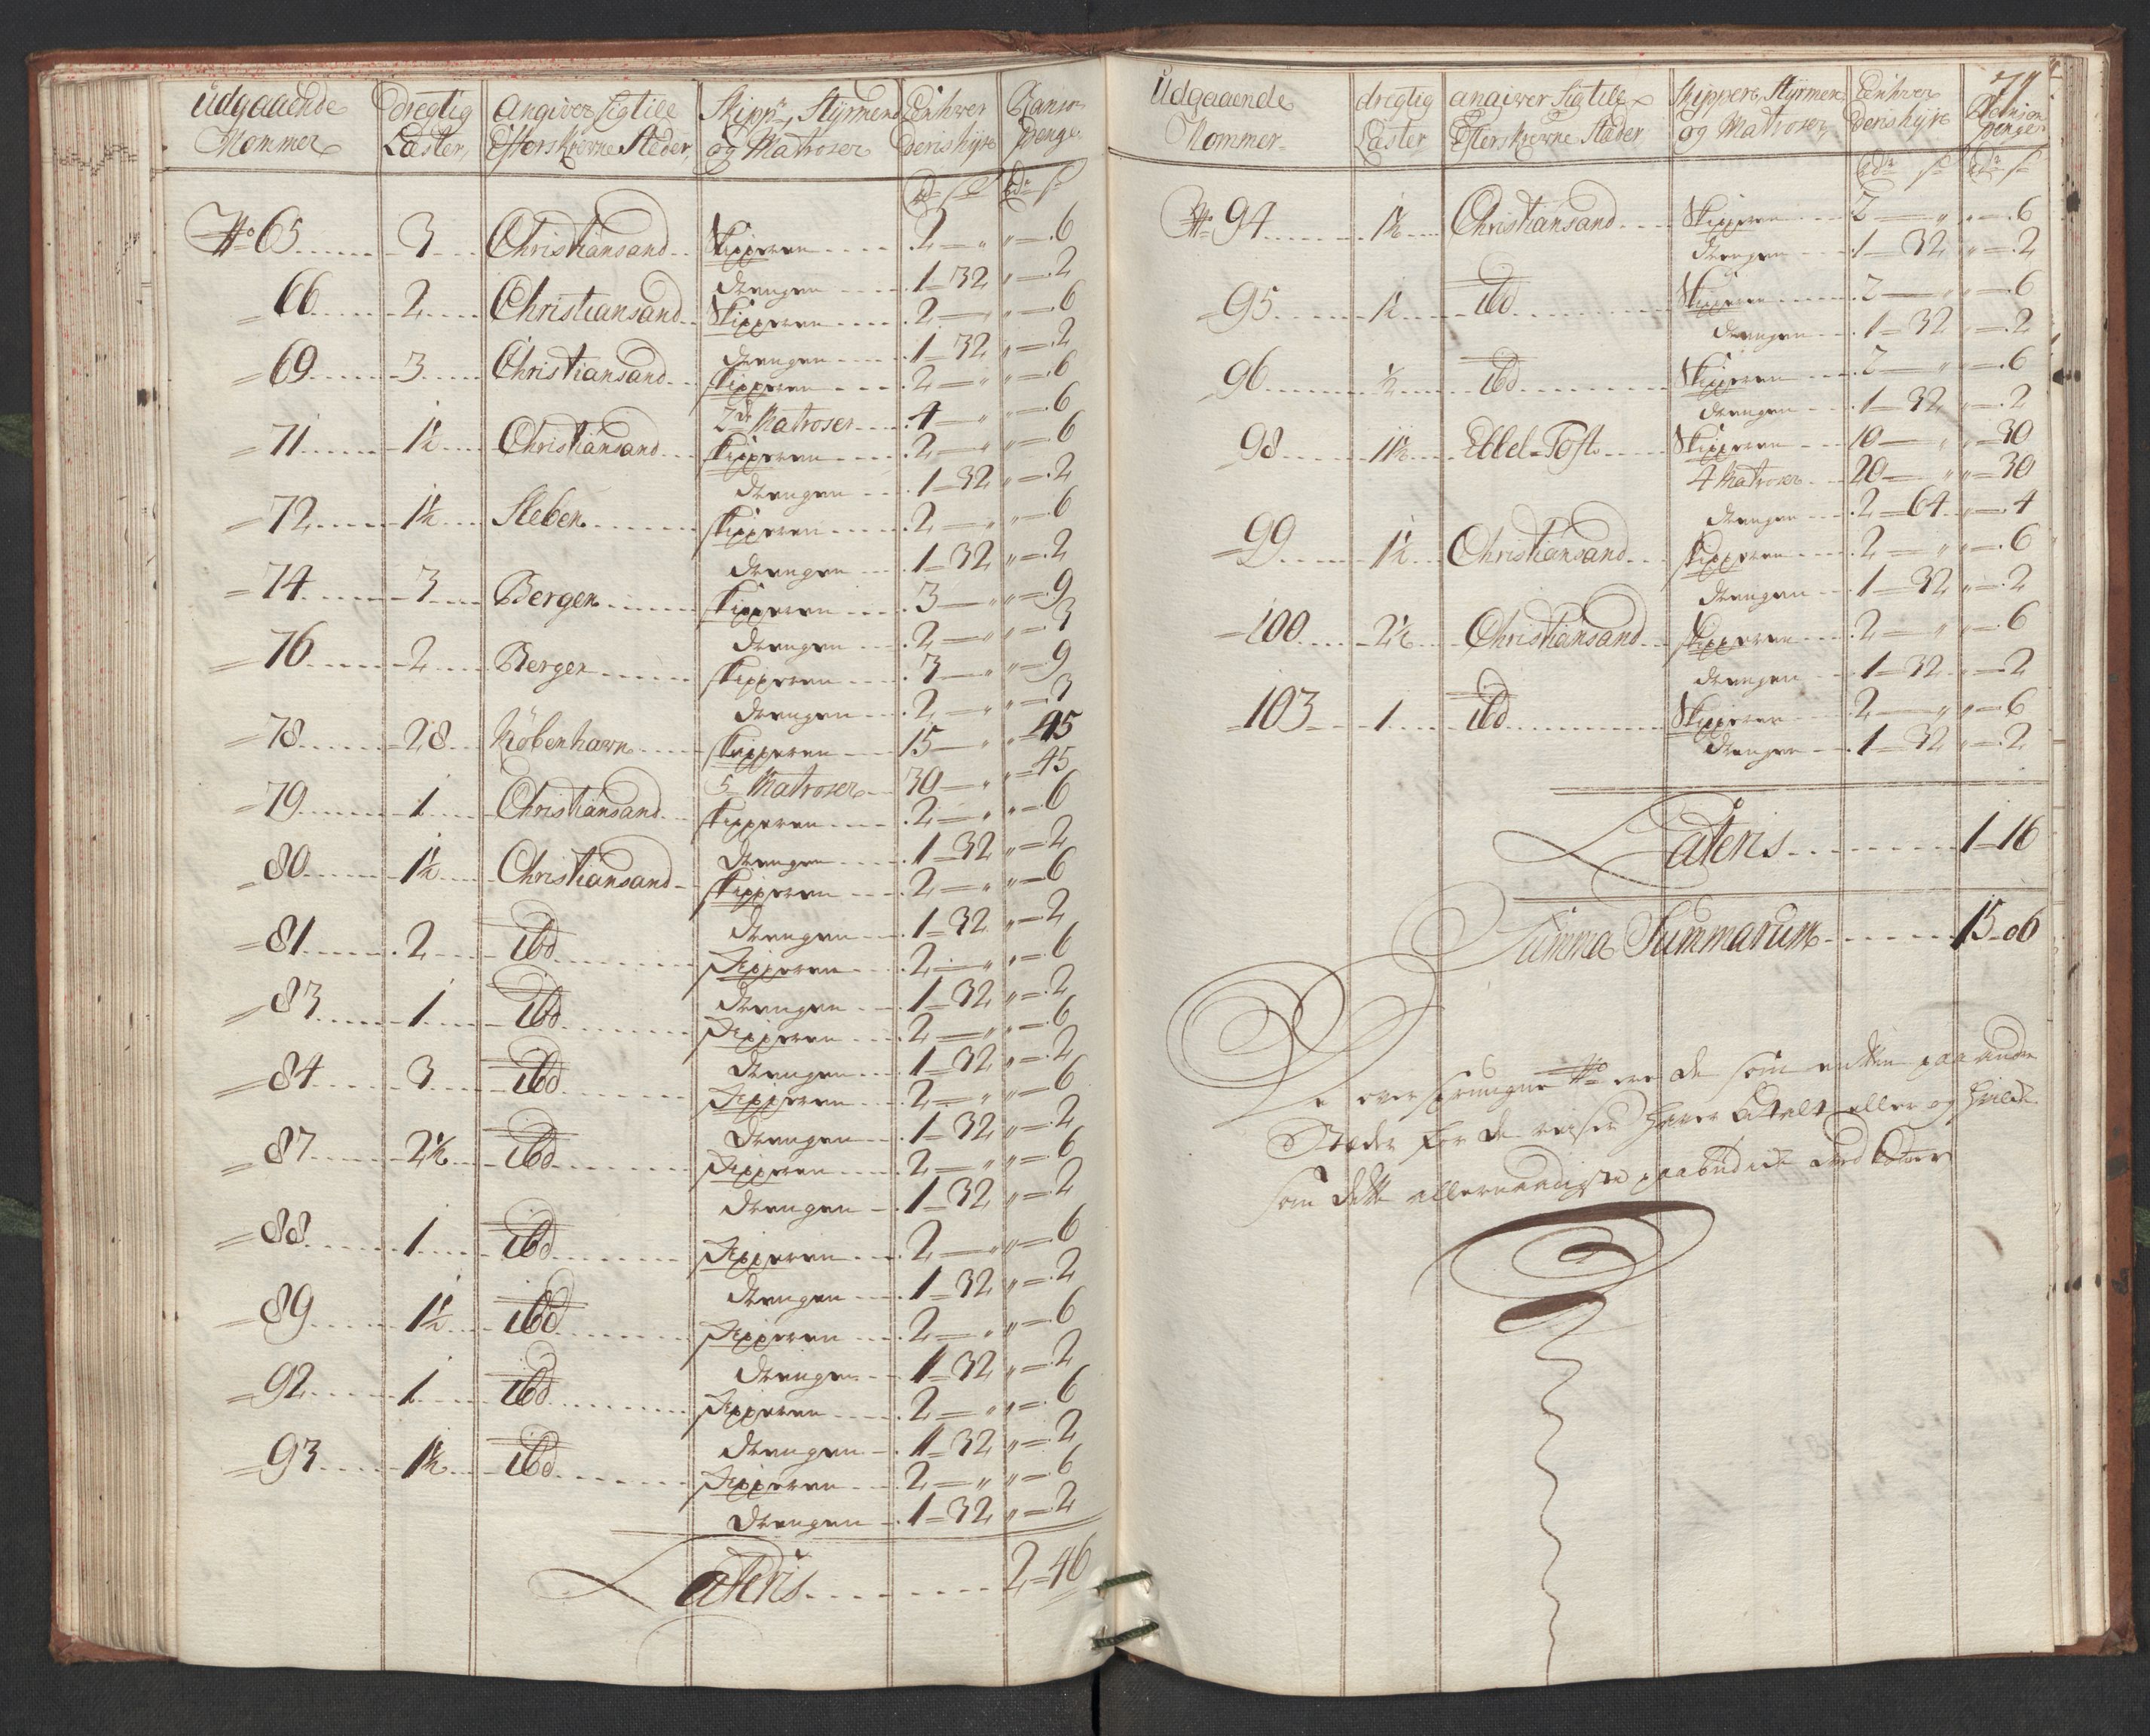 Udgaaende Nommer | dregtig Læster | Angiver sigtill Efterskrevne Stæder | Skippr, Styrmend og Matroser | Einhver Deris hyre | Ranso penge
rdr s | rdr s
No 65 | 3 | Christiansand | Skipperen | 2 — „ | „ — 6
drengen | 1 — 32 | „ — 2
66 | 2 | Christiansand | Skipperen | 2 — „ | „ — 6
drengen | 1 — 32 | „ — 2
69 | 3 | Christiansand | Skipperen | 2 — „ | „ — 6
2de Matroser | 4 — „ | „ — 6
71 | 1½ | Christiansand | Skipperen | 2 — „ | „ — 6
drengen | 1 — 32 | „ — 2
72 | 1½ | Sleben | Skipperen | 2 — „ | „ — 6
drengen | 1 — 32 | „ — 2
74 | 3 | Bergen | Skipperen | 3 — „ | „ — 9
drengen | 2 — „ | „ — 3
76 | 2 | Bergen | Skipperen | 3 — „ | „ — 9
drengen | 2 — „ | „ — 3
78 | 28 | Köbenhavn | Skipperen | 15 — „ | „ — 45
5 Matroser | 30 — „ | „ — 45
79 | 1 | Christiansand | Skipperen | 2 — „ | „ — 6
drengen | 1 — 32 | „ — 2
80 | 1½ | Christiansand | Skipperen | 2 — „ | „ — 6
drengen | 1 — 32 | „ — 2
81 | 2 | ibd | Skipperen | 2 — „ | „ — 6
drengen | 1 — 32 | „ — 2
83 | 1 | ibd | Skipperen | 2 — „ | „ — 6
drengen | 1 — 32 | „ — 2
84 | 3 | ibd | Skipperen | 2 — „ | „ — 6
drengen | 1 — 32 | „ — 2
87 | 2½ | ibd | Skipperen | 2 — „ | „ — 6
drengen | 1 — 32 | „ — 2
88 | 1 | ibd | Skipperen | 2 — „ | „ — 6
drengen | 1 — 32 | „ — 2
89 | 1½ | ibd | Skipperen | 2 — „ | „ — 6
drengen | 1 — 32 | „ — 2
92 | 1 | ibd | Skipperen | 2 — „ | „ — 6
drengen | 1 — 32 | „ — 2
93 | 1½ | ibd | Skipperen | 2 — „ | „ — 6
drengen | 1 — 32 | „ — 2
Lateris | 2 — 46
Udgaaende Nommer | dregtig Læster | angiver sigtill Efterskrevne Stæder | Skippere, Styrmen og Matroser | Einhver Deris hyre | penge
rdr s | rdr s
No 94 | 1½ | Christiansand | Skipperen | 2 — „ | „ — 6
drengen | 1 — 32 | „ — 2
95 | 1½ | ibd | Skipperen | 2 — „ | „ — 6
drengen | 1 — 32 | „ — 2
96 | ½ | ibd | Skipperen | 2 — „ | „ — 6
drengen | 1 — 32 | „ — 2
98 | 11½ | Ebbel-Toft | Skipperen | 10 — „ | „ — 30
4 Matroser | 20 — „ | „ — 30
drengen | 2 — 64 | „ — 4
99 | 1½ | Christiansand | Skipperen | 2 — „ | „ — 6
drengen | 1 — 32 | „ — 2
100 | 2½ | Christiansand | Skipperen | 2 — „ | „ — 6
drengen | 1 — 32 | „ — 2
103 | 1 | ibd | Skipperen | 2 — „ | „ — 6
drengen | 1 — 32 | „ — 2
Lateris | 1 — 16
Summa Summarum | 15 — 06
De over sprungne No ere de som enten paa andre
Stæder for de reiser haver betalt eller og
som dette allernaadigste paabud